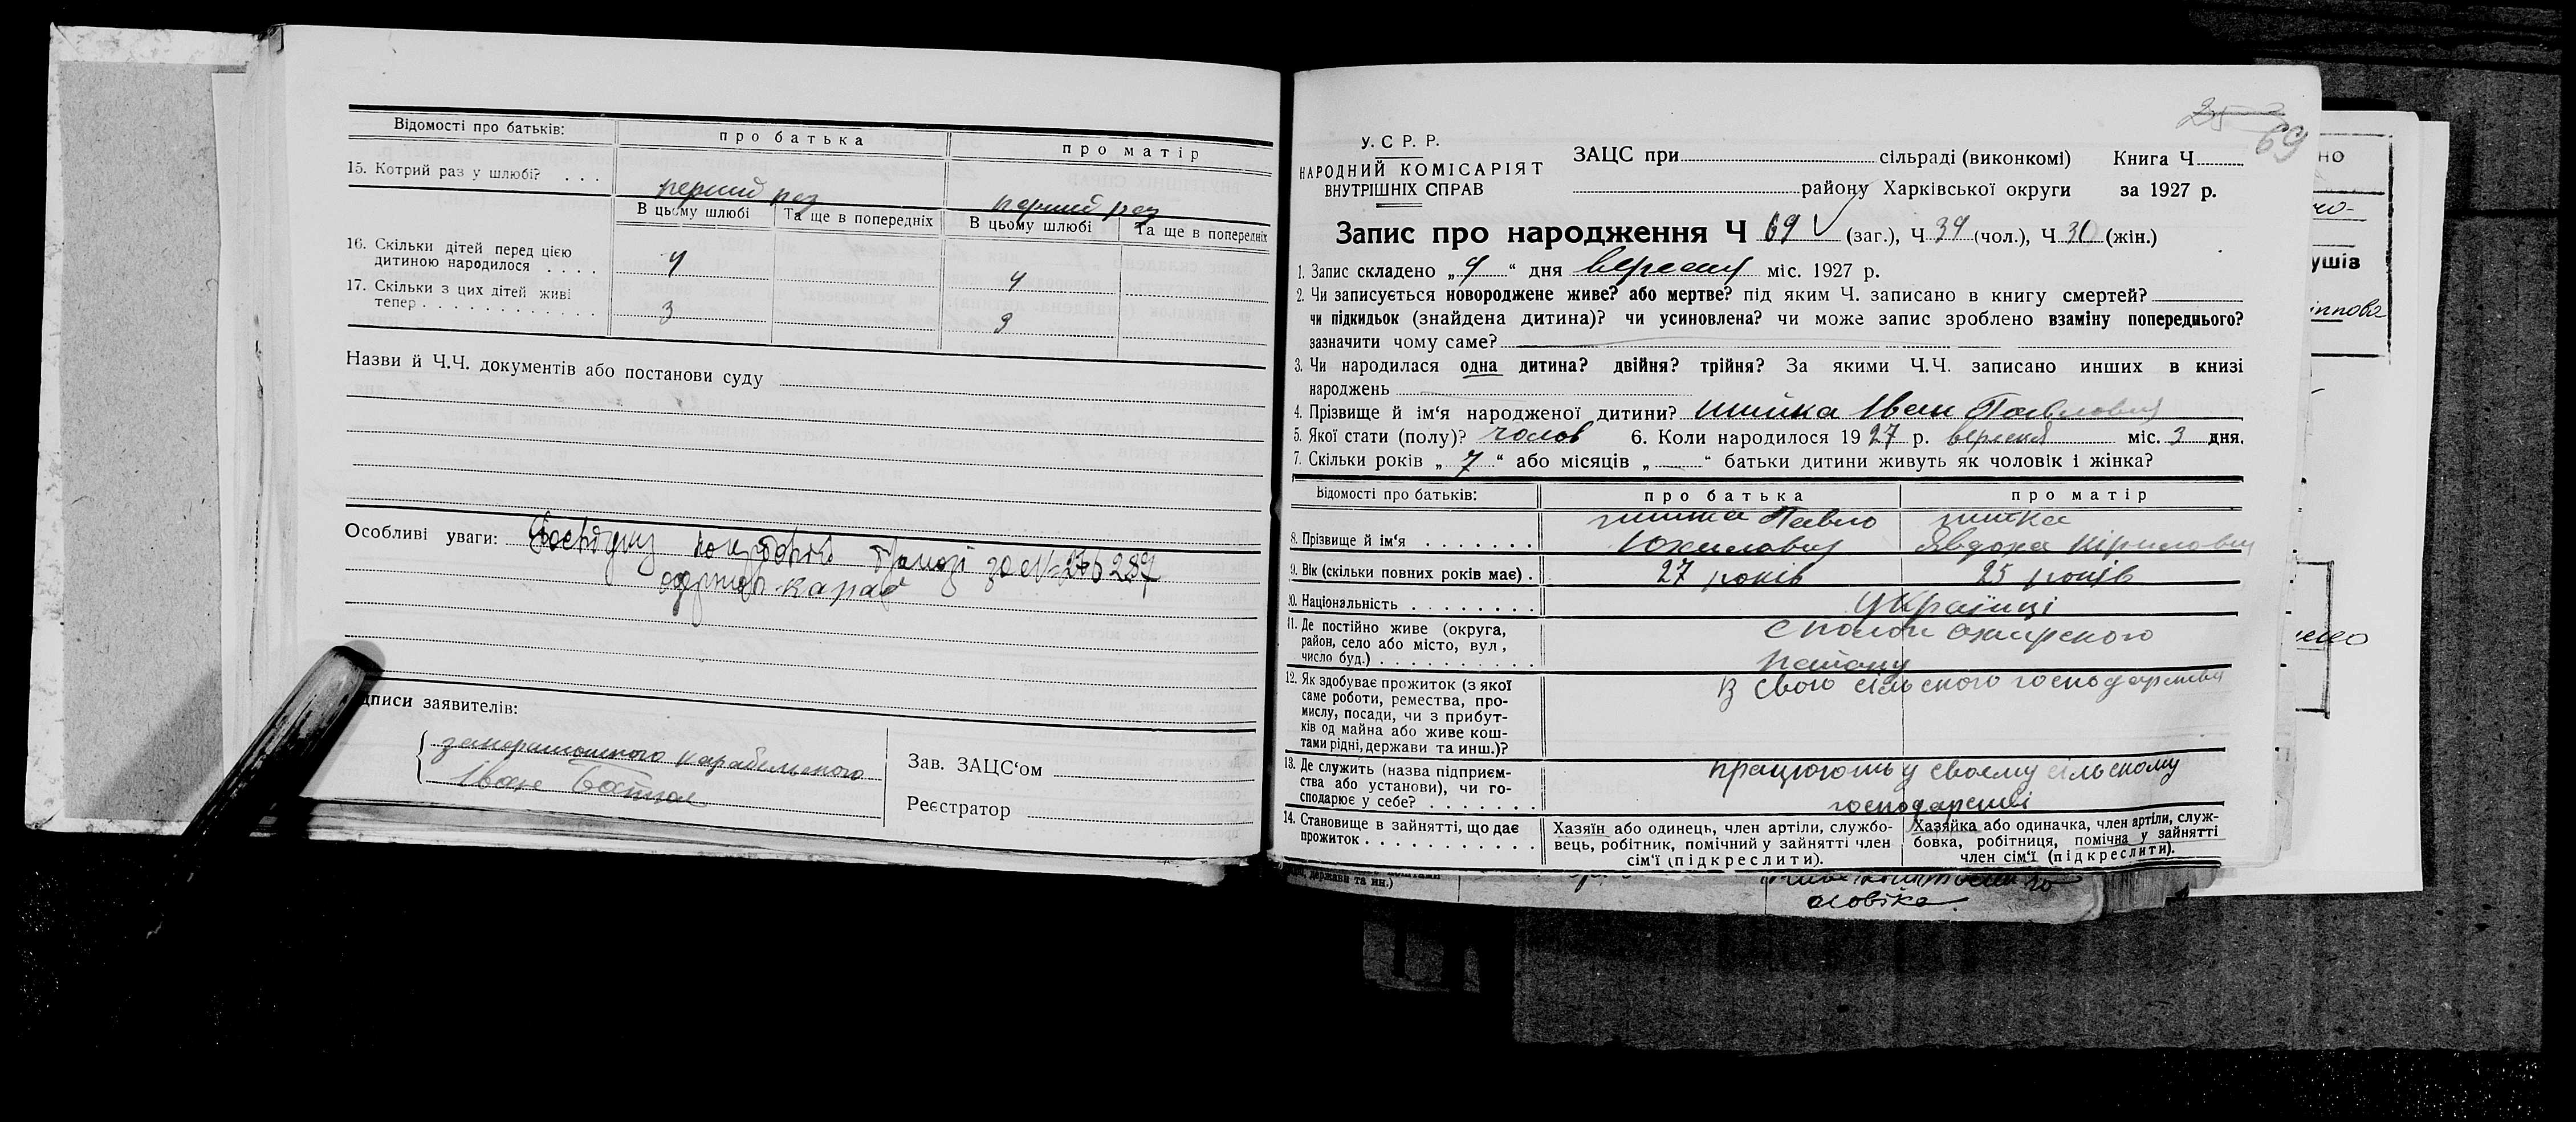 Відомості про батьків:
про батька
про матір
15. Котрий раз у шлюбі? . . .
перший раз
перший раз
В цьому шлюбі
Та ще в попередніх
В цьому шлюбі
Та ще в попередніх
16. Скільки дітей перед цією
дитиною народилося . . . .
4
4
17. Скільки з цих дітей живі
тепер . . . . . . . . . . . .
3
3
Назви й Ч.Ч. документів або постанови суду
Особливі уваги:
одержав
дписи заявителів:
Іван
Зав. ЗАЦС‘ом
Реєстратор
25
69
У. С. Р. Р.
НАРОДНИЙ КОМІСАРІЯТ
ВНУТРІШНІХ СПРАВ
ЗАЦС при сільраді (виконкомі) Книга Ч
району Харківської округи за 1927 р.
Запис про народження Ч 69 (заг.), Ч 39 (чол.), Ч 30 (жін.)
1. Запис складено „ 4 “ дня вересня міс. 1927 р.
2. Чи записується новороджене живе? або мертве? під яким Ч. записано в книгу смертей?
чи підкидьок (знайдена дитина)? чи усиновлена? чи може запис зроблено взаміну попереднього?
зазначити чому саме?
3. Чи народилася одна дитина? двійня? трійня? За якими Ч.Ч. записано инших в книзі
народжень
4. Прізвище й ім‘я народженої дитини? Іван Павлович
5. Якої стати (полу)? чолов 6. Коли народилося 1927 р. вересня міс. 3 дня.
7. Скільки років „ 7 “ або місяців „ “ батьки дитини живуть як чоловік і жінка?
Відомості про батьків:
про батька
про матір
8. Прізвище й ім‘я . . . . . . .
Павло
Явдоха Кірилович
9. Вік (скільки повних років має) .
27 років
25 років
10. Національність . . . . . . . .
Українці
11. Де постійно живе (округа,
район, село або місто, вул,
число буд.) . . . . . . . . . . .
району
12. Як здобуває прожиток (з якої
саме роботи, ремества, про-
мислу, посади, чи з прибут-
ків од майна або живе кош-
тами рідні, держави та инш.)?
З свого сільського господарства
13. Де служить (назва підприєм-
ства або установи), чи го-
сподарює у себе? . . . . . . .
працюють у своєму сільскому
господарстві
14. Становище в зайнятті, що дає
прожиток . . . . . . . . . . .
Хазяїн або одинець, член артіли, службо-
вець, робітник, помічний у зайнятті член
сім‘ї (підкреслити).
Хазяйка або одиначка, член артіли, служ-
бовка, робітниця, помічна у зайнятті
член сім‘ї (підкреслити).
держави та ин.)